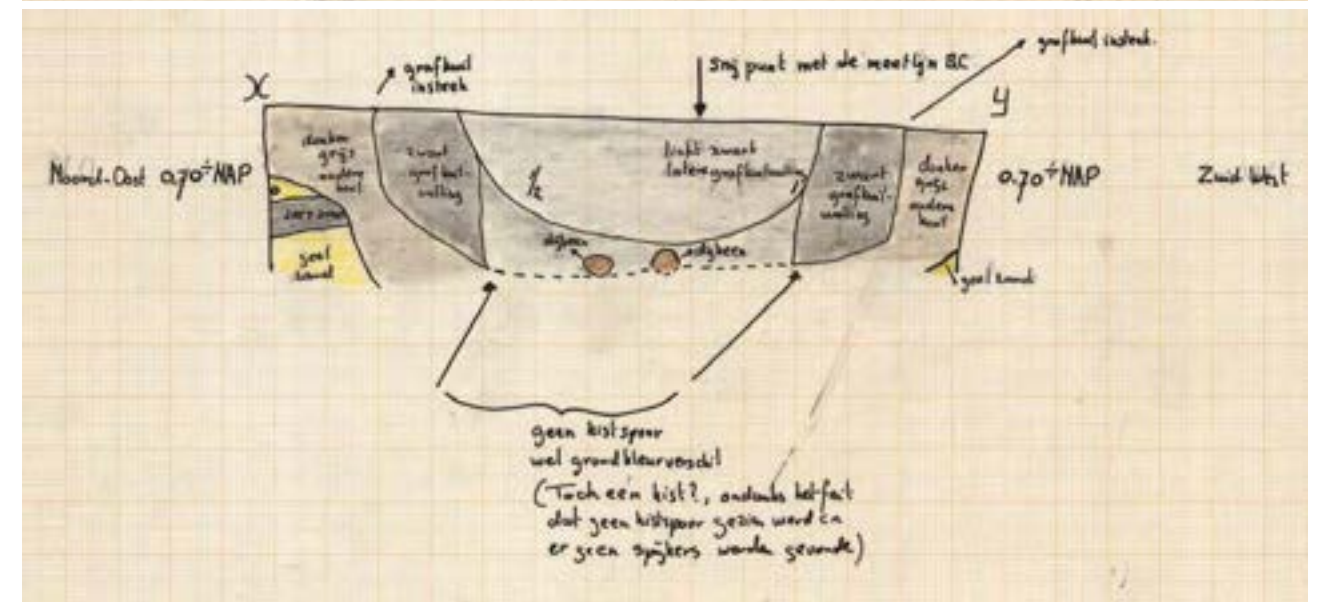 X
grafkuil
insteek
snij punt met de meetlijn BC
grafkuil insteek.
y
Noord-Oost 0.70 ÷ NAP
donker
grijs
oudere
kuil
zwart
grafkuil-
vulling
1/2
licht zwart
latere grafkuilvulling
1
zwart
grafkuil-
vulling
donker
grijs
oudere
kuil
0.70 ÷ NAP
Zuid West
zand
geel
zand
dijbeen
dijbeen
geel zand
geen kistspoor
wel grondkleurverschil
(Toch een kist?, ondanks het feit
dat geen kistspoor gezien werd en
er geen spijkers werden gevonde)